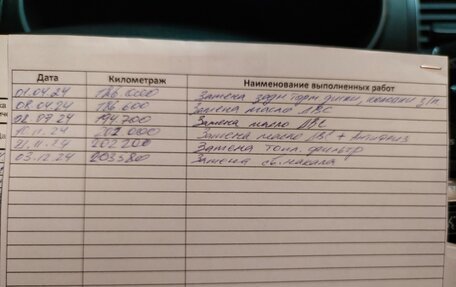 Дата Километраж Наименование выполненных работ
01.04.24 186 000 Замена задн торм диски, колодки з/п
08.04.24 186 600 Замена масло ДВС
02.09.24 194 700 Замена масло ДВС
10.11.24 202 000 Замена масло ДВС + Антифриз
21.11.24 202 200 Замена топл. фильтр
03.12.24 203 580 Замена